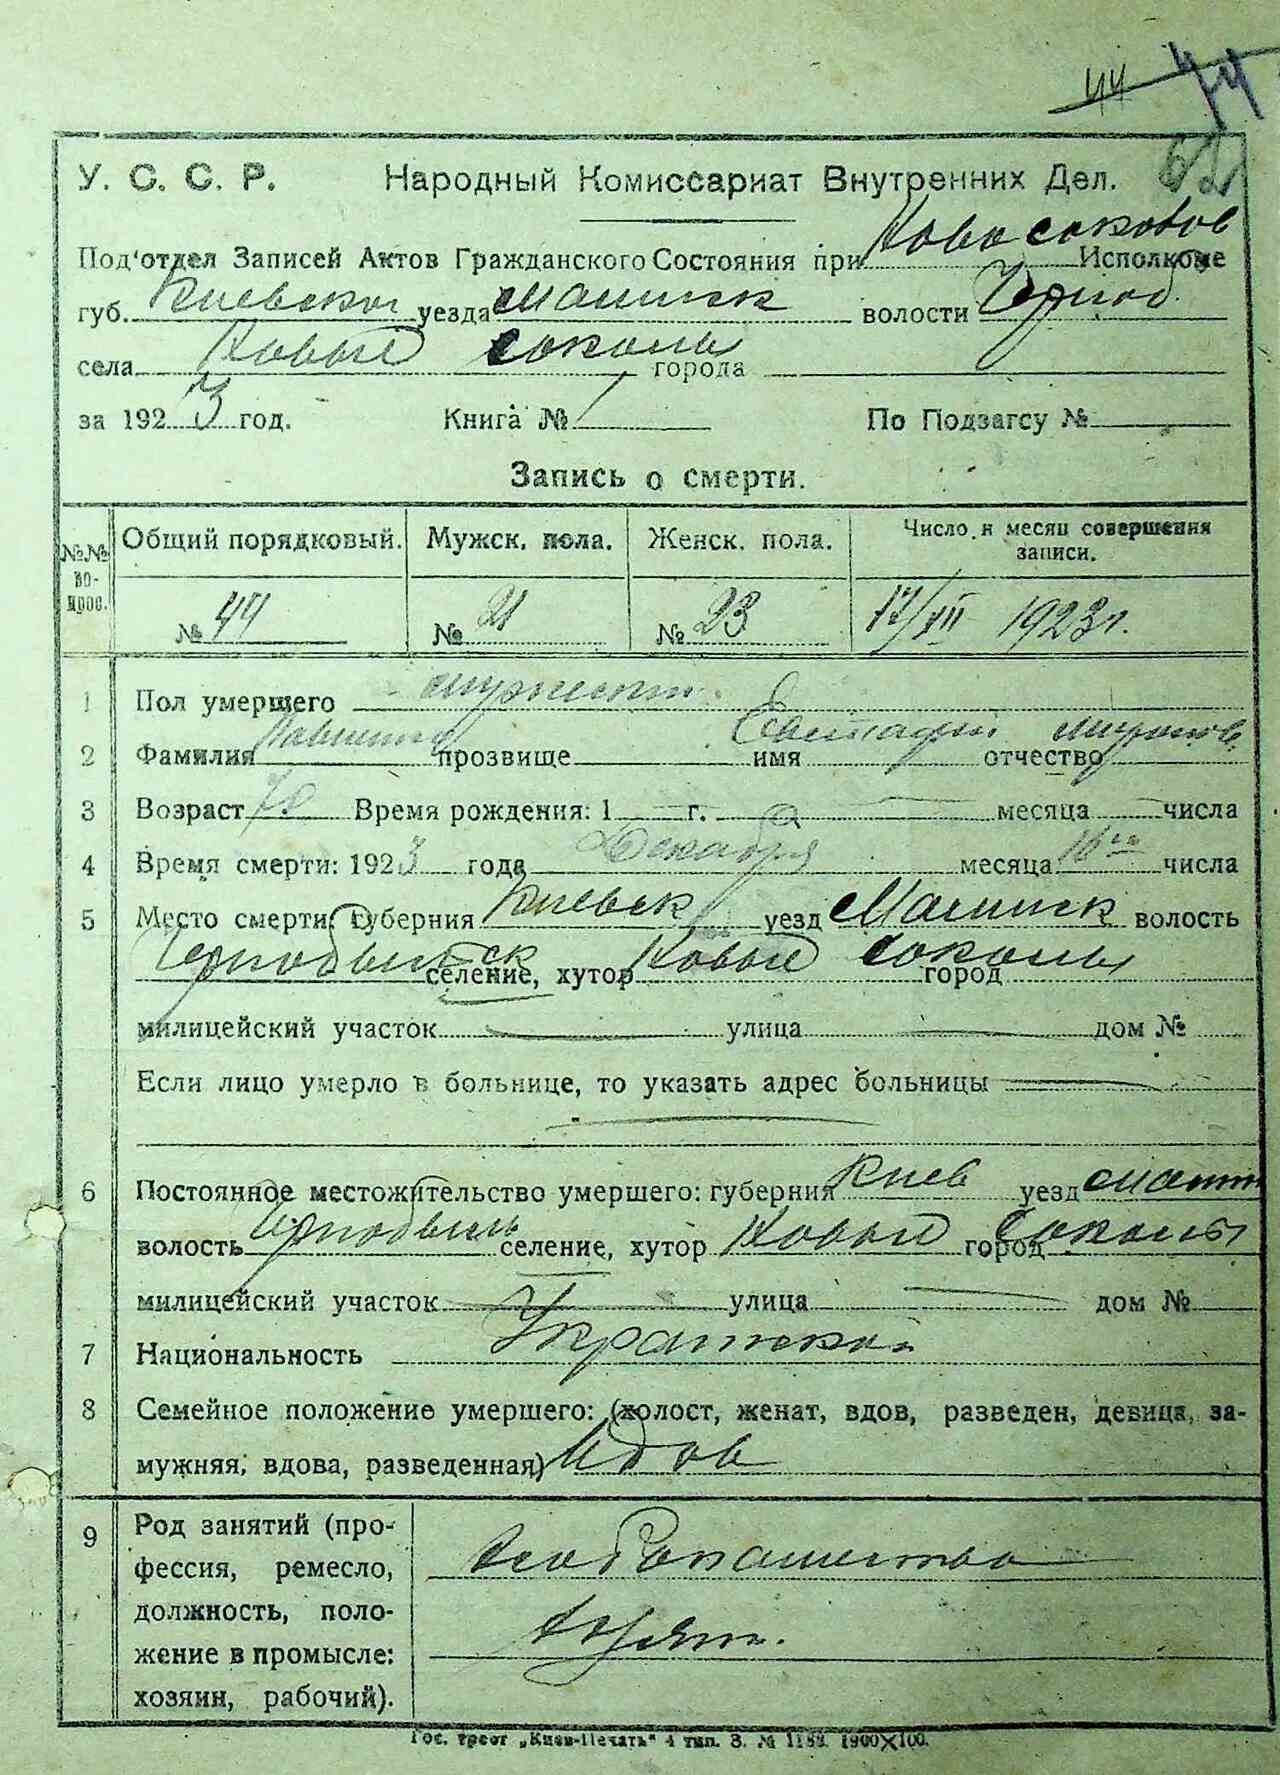 44 44
62
У. С. С. Р. Народный Комиссариат Внутренних Дел.
Под'отдел Записей Актов Гражданского Состояния при Новосоколов Исполкоме
губ. Киевской уезда Малинск волости Черноб.
села Новые Соколы города
за 1923 год. Книга № 1 По Подзагсу №
Запись о смерти.
№№ во-прос. Общий порядковый. Мужск. пола. Женск. пола. Число и месяц совершения записи.
№ 44 № 21 № 23 17/XII 1923 г.
1 Пол умершего мужской
2 Фамилия прозвище имя Евстафий отчество Миронов
3 Возраст Время рождения: 1 г. месяца числа
4 Время смерти: 1923 года Декабря месяца 16го числа
5 Место смерти: Губерния Киевск уезд Малинск волость
Чернобыльск селение, хутор Новые Соколы город
милицейский участок улица дом №
Если лицо умерло в больнице, то указать адрес больницы
6 Постоянное местожительство умершего: губерния Киев уезд Малин
волость Чернобыль селение, хутор Новые город Соколы
милицейский участок улица дом №
7 Национальность
8 Семейное положение умершего: (холост, женат, вдов, разведен, девица, за-
мужняя, вдова, разведенная) Вдов
9 Род занятий (про-
фессия, ремесло,
должность, поло-
жение в промысле:
хозяин, рабочий).
Гос. трест „Киев-Печать“ 4 тип. З. № 1182. 1900×100.